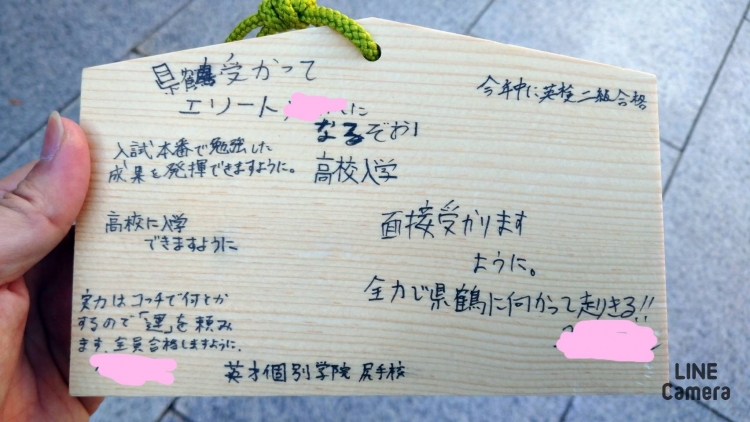 県鶴受かって
エリート に
なるぞお!
今年中に英検二級合格
入試本番で勉強した
成果を発揮できますように。
高校入学
高校に入学
できますように
面接受かります
ように。
全力で県鶴に向かって走りきる!!
実力はコッチで何とか
するので「運」を頼み
ます。全員合格しますように。
英才個別学院 尻手校
LINE
Camera